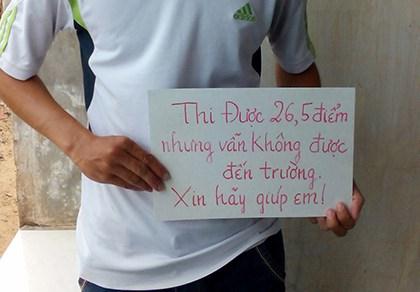 Thi Được 26,5 điểm
nhưng vẫn không được
đến trường.
Xin hãy giúp em!